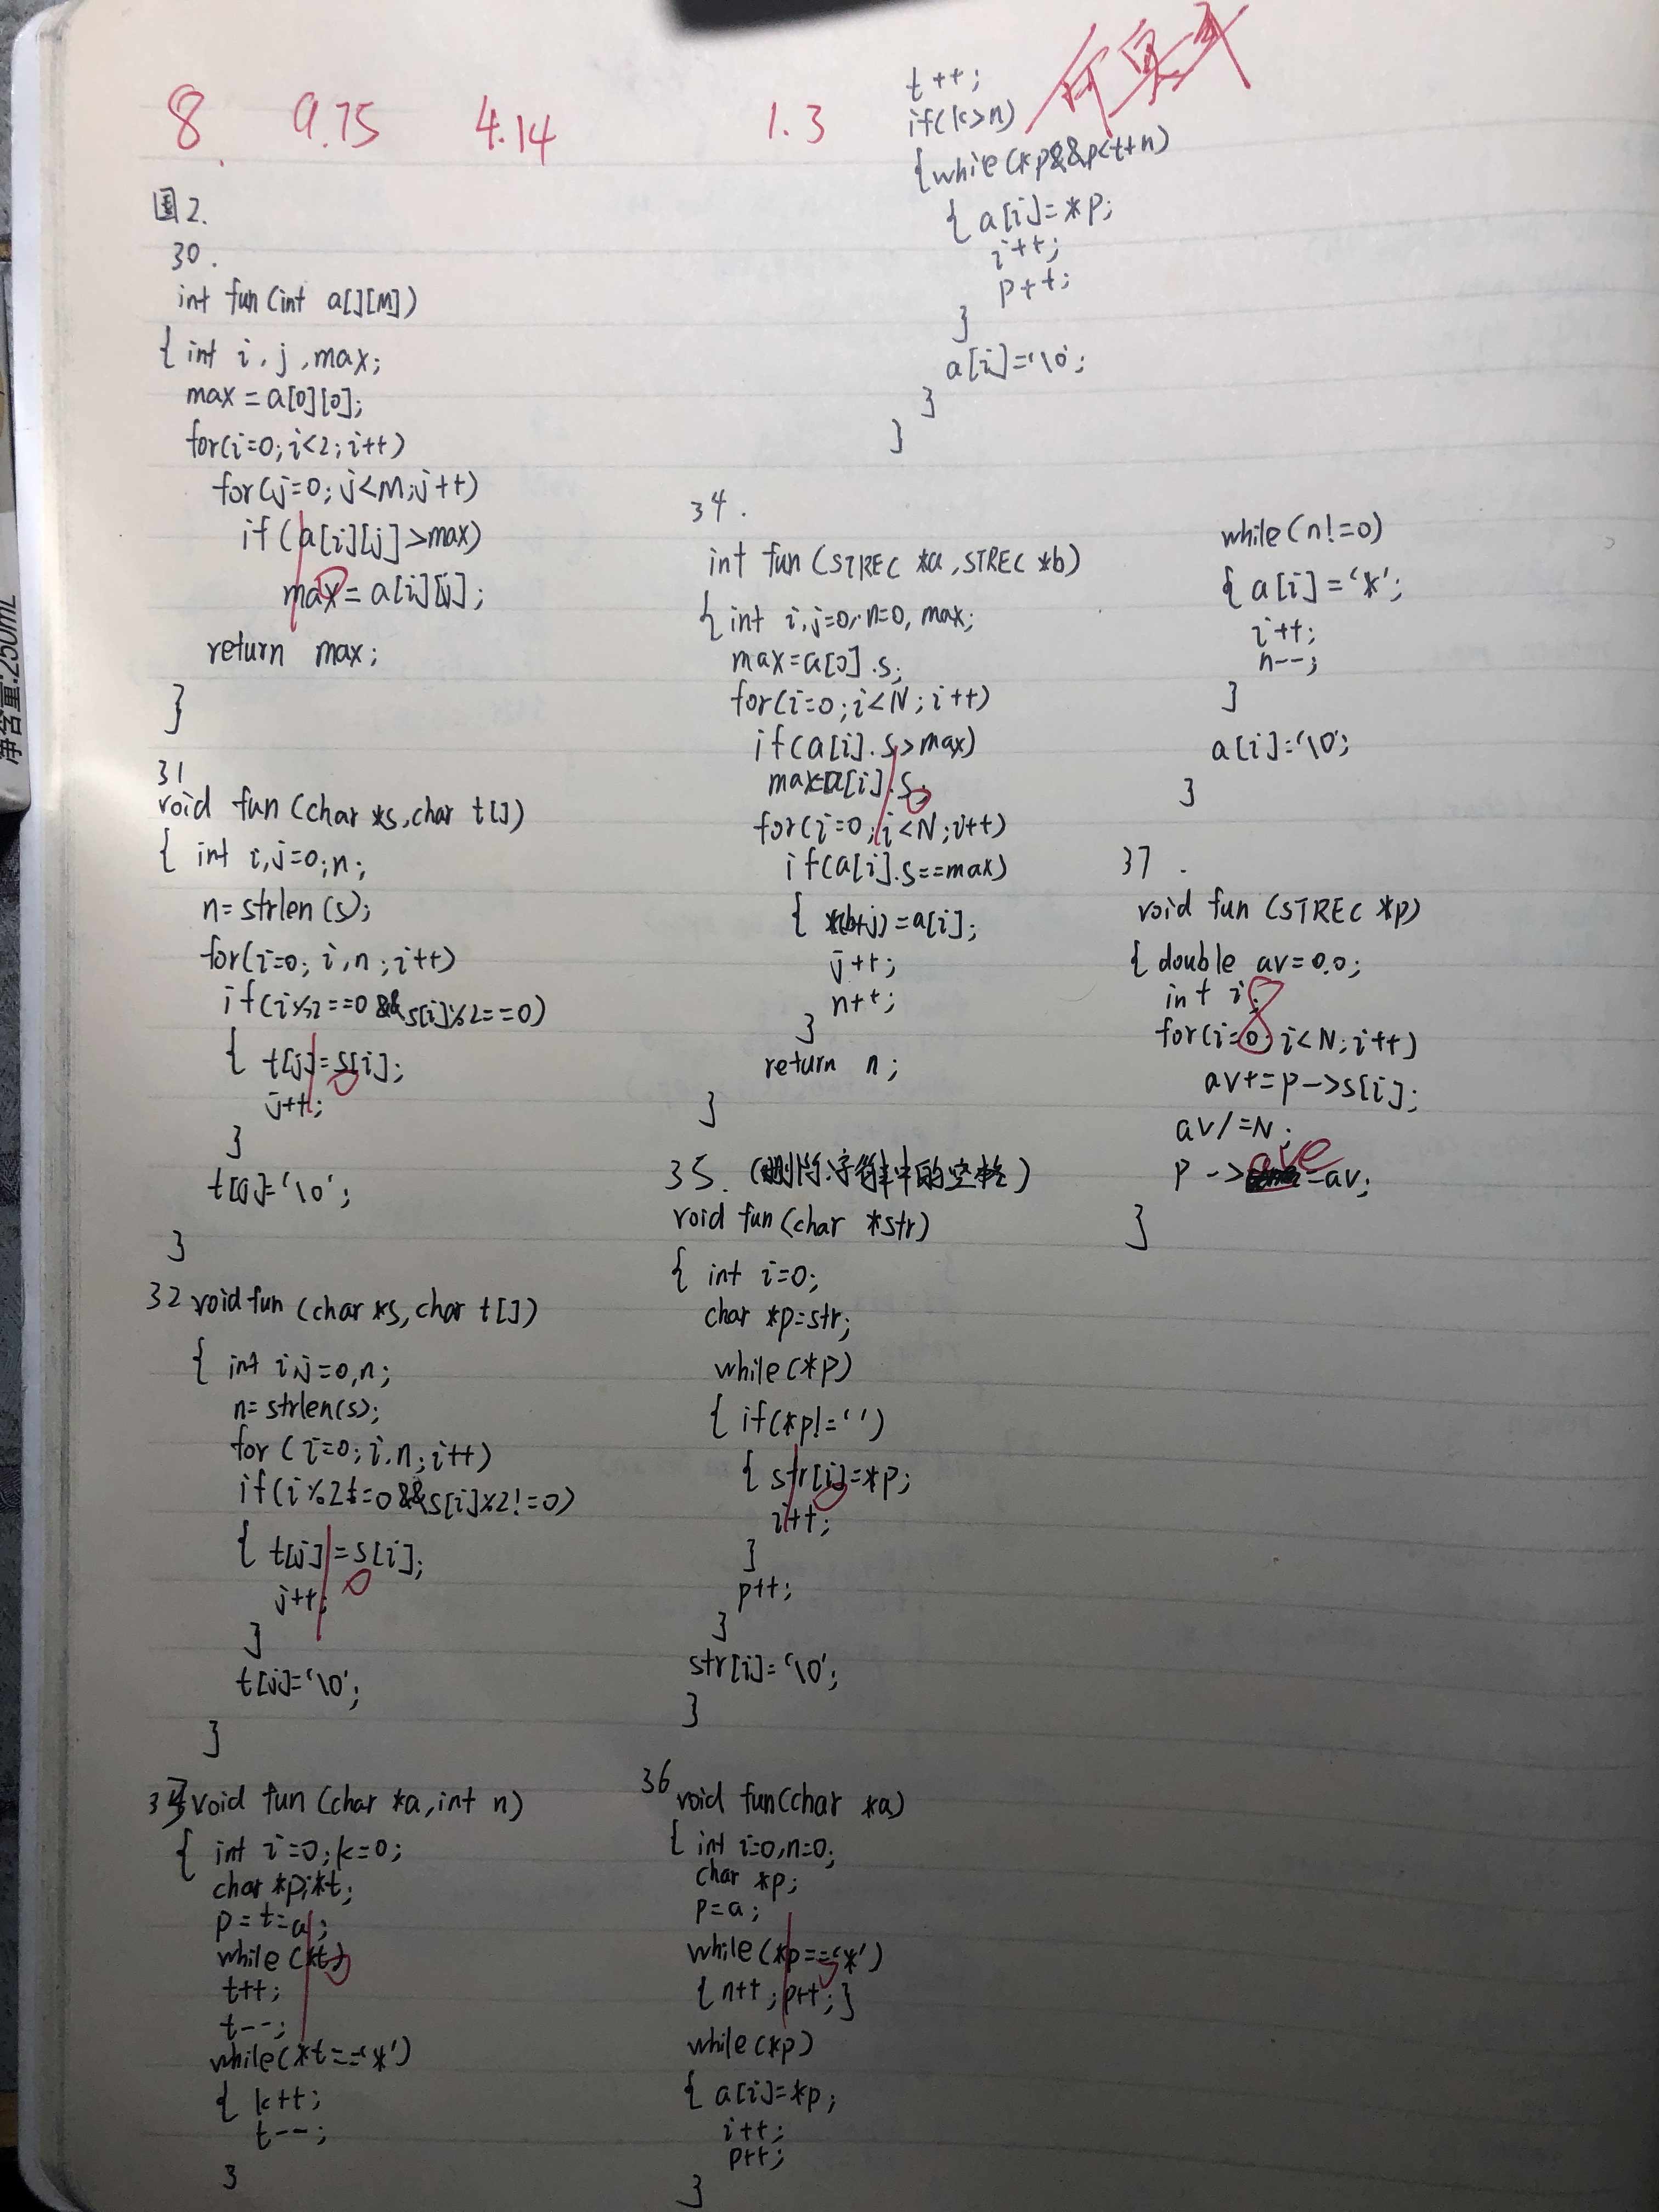 8.
9.75
4.14
1.3
图2.
30.
int fun(int a[][M])
{ int i, j, max;
max = a[0][0];
for(i=0; i<2; i++)
for(j=0; j<M; j++)
if (a[i][j]>max)
max = a[i][j];
return max;
}
31
void fun (char *s, char t[])
{ int i, j=0; n;
n= strlen(s);
for(i=0; i,n; i++)
if(i%2==0 && s[i]%2==0)
{ t[j]=s[i];
j++;
}
t[j]='\0';
}
32 void fun (char *s, char t[])
{ int i,j=0,n;
n= strlen(s);
for (i=0; i,n; i++)
if(i%2!=0 && s[i]%2!=0)
{ t[j]=s[i];
j++;
}
t[j]='\0';
}
33 void fun (char *a, int n)
{ int i=0; k=0;
char *p,*t;
p=t=a;
while (*t)
t++;
t--;
while(*t=='*')
{ k++;
t--;
}
t++;
if(k>n)
{while(*p&&p<t+n)
{ a[i]=*p;
i++;
p++;
}
a[i]='\0';
}
}
34.
int fun (STREC *a, STREC *b)
{ int i, j=0, n=0, max;
max=a[0].s;
for(i=0; i<N; i++)
if(a[i].s>max)
max=a[i].s;
for(i=0; i<N; i++)
if(a[i].s==max)
{ *(b+j)=a[i];
j++;
n++;
}
return n;
}
35. (删除字符串中的空格)
void fun (char *str)
{ int i=0;
char *p=str;
while(*p)
{ if(*p!=' ')
{ str[i]=*p;
i++;
}
p++;
}
str[i]='\0';
}
36 void fun(char *a)
{ int i=0,n=0;
char *p;
p=a;
while(*p=='*')
{ n++; p++; }
while(*p)
{ a[i]=*p;
i++;
p++;
}
while(n!=0)
{ a[i]='*';
i++;
n--;
}
a[i]='\0';
}
37.
void fun (STREC *p)
{ double av=0.0;
int i;
for(i=0; i<N; i++)
av+=p->s[i];
av/=N;
p->ave=av;
}
净含量:250mL